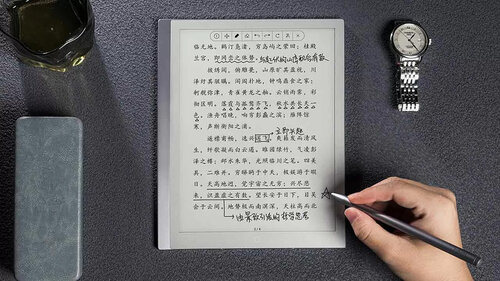 临无地。鹤汀凫渚,穷岛屿之萦回;桂殿
兰宫,即冈峦之体势。
披绣闼,俯雕甍,山原旷其盈视,川
泽纡其骇瞩。闾阎扑地,钟鸣鼎食之家;
舸舰弥津,青雀黄龙之舳。云销雨霁,彩
彻区明。落霞与孤鹜齐飞,秋水共长天一
色。渔舟唱晚,响穷彭蠡之滨;雁阵惊
寒,声断衡阳之浦。
遥襟甫畅,逸兴遄飞。爽籁发而清风
生,纤歌凝而白云遏。睢园绿竹,气凌彭
泽之樽;邺水朱华,光照临川之笔。四美
具,二难并。穷睇眄于中天,极娱游于暇
日。天高地迥,觉宇宙之无穷;兴尽悲
来,识盈虚之有数。望长安于日下,目吴
会于云间。地势极而南溟深,天柱高而北
由景致引发的哲学思考
2/4